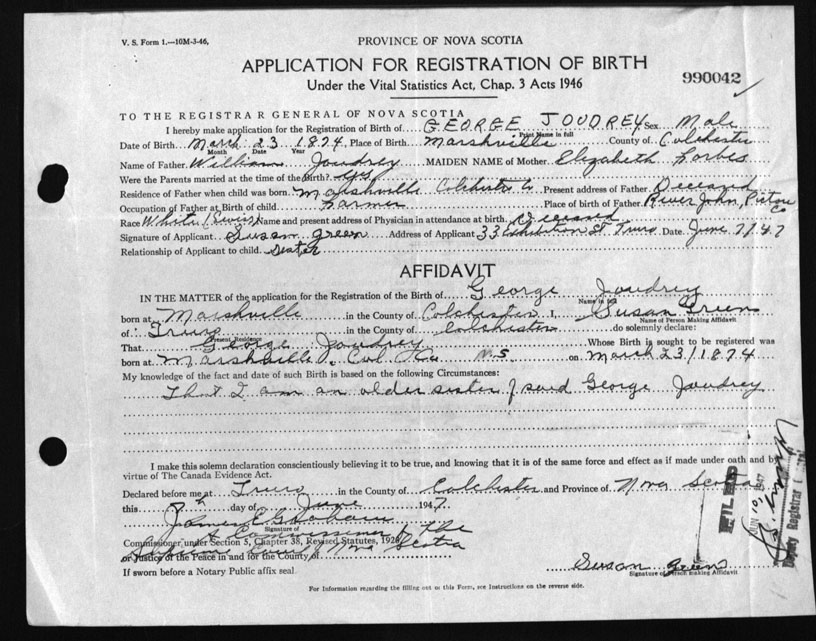 V. S. Form 1.—10M-3-46,
PROVINCE OF NOVA SCOTIA
APPLICATION FOR REGISTRATION OF BIRTH
Under the Vital Statistics Act, Chap. 3 Acts 1946
990042
TO THE REGISTRAR GENERAL OF NOVA SCOTIA
I hereby make application for the Registration of Birth of GEORGE JOUDREY Sex Male
Print Name in full
Date of Birth March 23 1874, Place of Birth Marshville County of Colchester
Month Date Year
Name of Father William Joudrey MAIDEN NAME of Mother Elizabeth Forbes
Were the Parents married at time of the Birth? yes
Residence of Father when child was born Marshville Colchester Co Present address of Father Deceased
Occupation of Father at Birth of child Farmer Place of birth of Father River John, Pictou Co
Race White (Swiss) Name and present address of Physician in attendance at birth Deceased
Signature of Applicant Susan Green Address of Applicant 33 Exhibition St Truro Date June 7/47
Relationship of Applicant to child Sister
AFFIDAVIT
IN THE MATTER of the application for the Registration of the Birth of George Joudrey
Name in full
born at Marshville in the County of Colchester I, Susan Green
Name of Person Making Affidavit
of Truro in the County of Colchester do solemnly declare:
Present Residence
That George Joudrey Whose Birth is sought to be registered was
born at Marshville Col. Co. N.S on March 23/1874
My knowledge of the fact and date of such Birth is based on the following Circumstances:
That I am an older sister of said George Joudrey
I make this solemn declaration conscientiously believing it to be true, and knowing that it is of the same force and effect as if made under oath and by
virtue of The Canada Evidence Act.
Declared before me at Truro in the County of Colchester and Province of Nova Scotia
this 7th day of June 1947
James E Graham
Signature of
A Commissioner of The
Commissioner under Section 5, Chapter 38, Revised Statutes, 1923
Supreme Court of Nova Scotia
or Justice of the Peace in and for the County of
If sworn before a Notary Public affix seal
Susan Green
Signature of Person Making Affidavit
FILED
JUN 10 1947
Deputy Registrar General
For Information regarding the filling out of this Form, see Instructions on the reverse side.